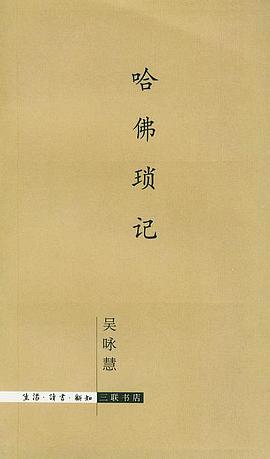 哈佛琐记
吴咏慧
生活·读书·新知 三联书店